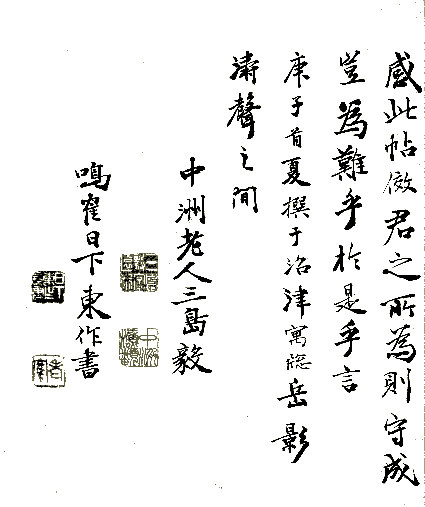 感此帖倣君之所為則守成
豈為難乎於是乎言
庚子首夏撰于沼津寓窓岳影
濤聲之間
中洲老人三島毅
鳴隺日下東作書